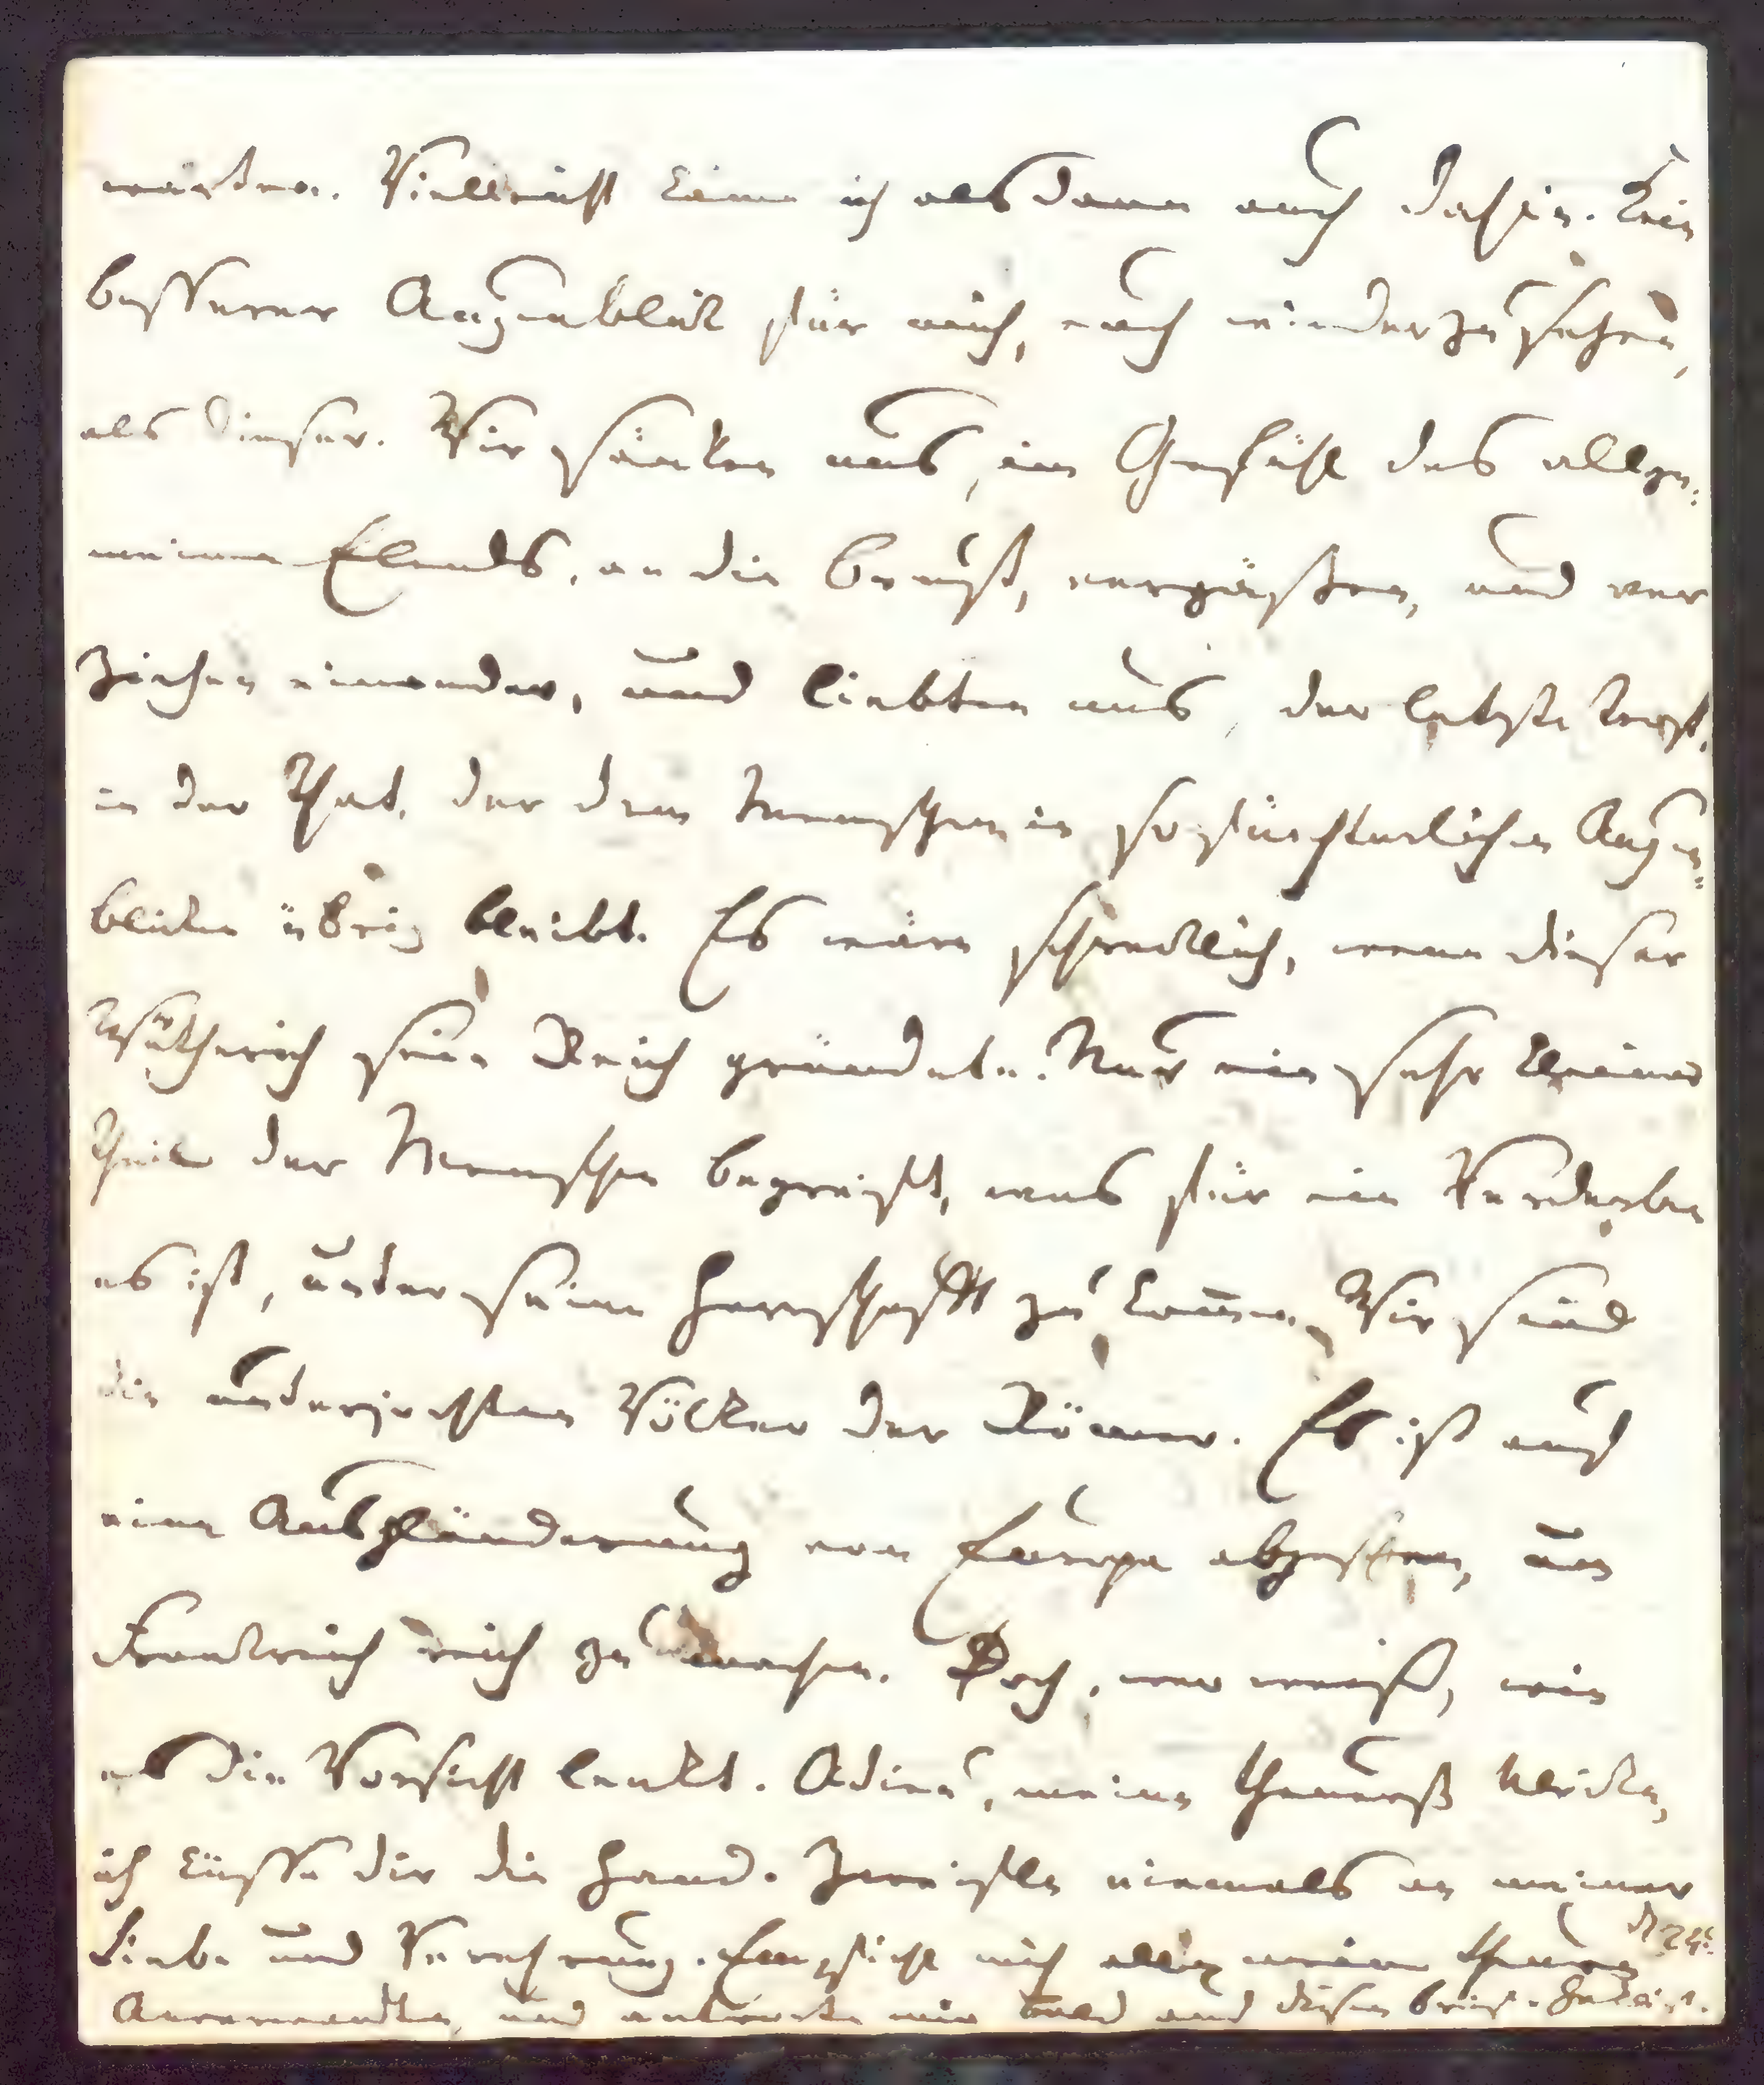 werden. Vielleicht käme ich alsdann auch dahin. Kein
besserer Augenblick für mich, euch wiederzusehen,
als dieser. Wir sänken uns, im Gefühl des allge=
meinen Elends, an die Brust, vergäßen, und ver
ziehen einander, und liebten uns, der letzte Trost,
in der That, der dem Menschen in so fürchterlichen Augen=
blicken übrig bleibt. Es wäre schrecklich, wenn dieser
Wütherich sein Reich gründete. Nur ein sehr kleiner
Theil der Menschen begreift, was für ein Verderben
es ist, unter seine Herrschafft zu kommen. Wir sind
die unterjochten Völker der Römer. Es ist auf
eine Ausplünderung von Europa abgesehen, um
Frankreich reich zu machen. Doch, wer weiß, wie
es die Vorsicht lenkt. Adieu, meine theuerste Ulrike,
ich küsse dir die Hand. Zweifle niemals an meiner
Liebe und Verehrung. Empfiehl mich allen meinen theuren
Anverwandten, und antworte mir bald auf diesen Brief. H. Kleist.
d 24t